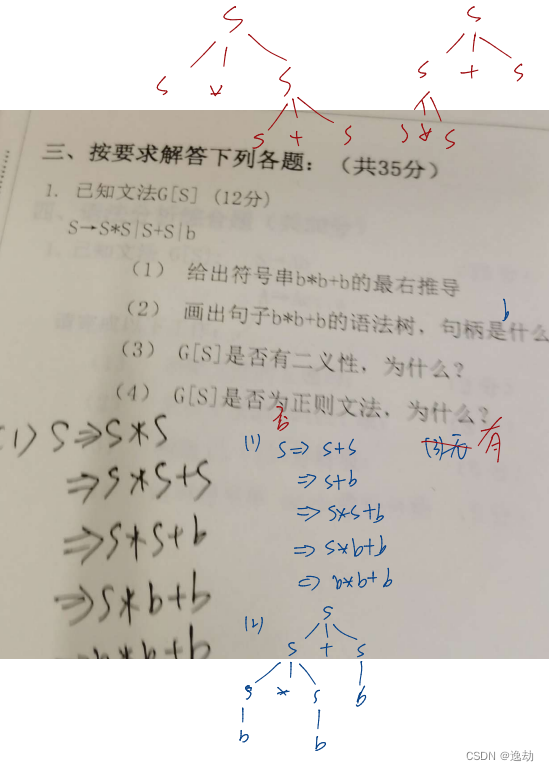 S
S * S
S + S
S
S + S
S * S
三、按要求解答下列各题：（共35分）
1. 已知文法G[S] (12分)
S→S*S|S+S|b
（1） 给出符号串b*b+b的最右推导
（2） 画出句子b*b+b的语法树，句柄是什么
b
（3） G[S]是否有二义性，为什么？
（4） G[S]是否为正则文法，为什么？
否
(1) S⇒S*S
⇒S*S+S
⇒S*S+b
⇒S*b+b
⇒b*b+b
(1) S⇒ S+S
⇒ S+b
⇒ S*S+b
⇒ S*b+b
⇒ b*b+b
(3) 无 有
(2)
S
S + S
S * S b
b b
CSDN @逸劫